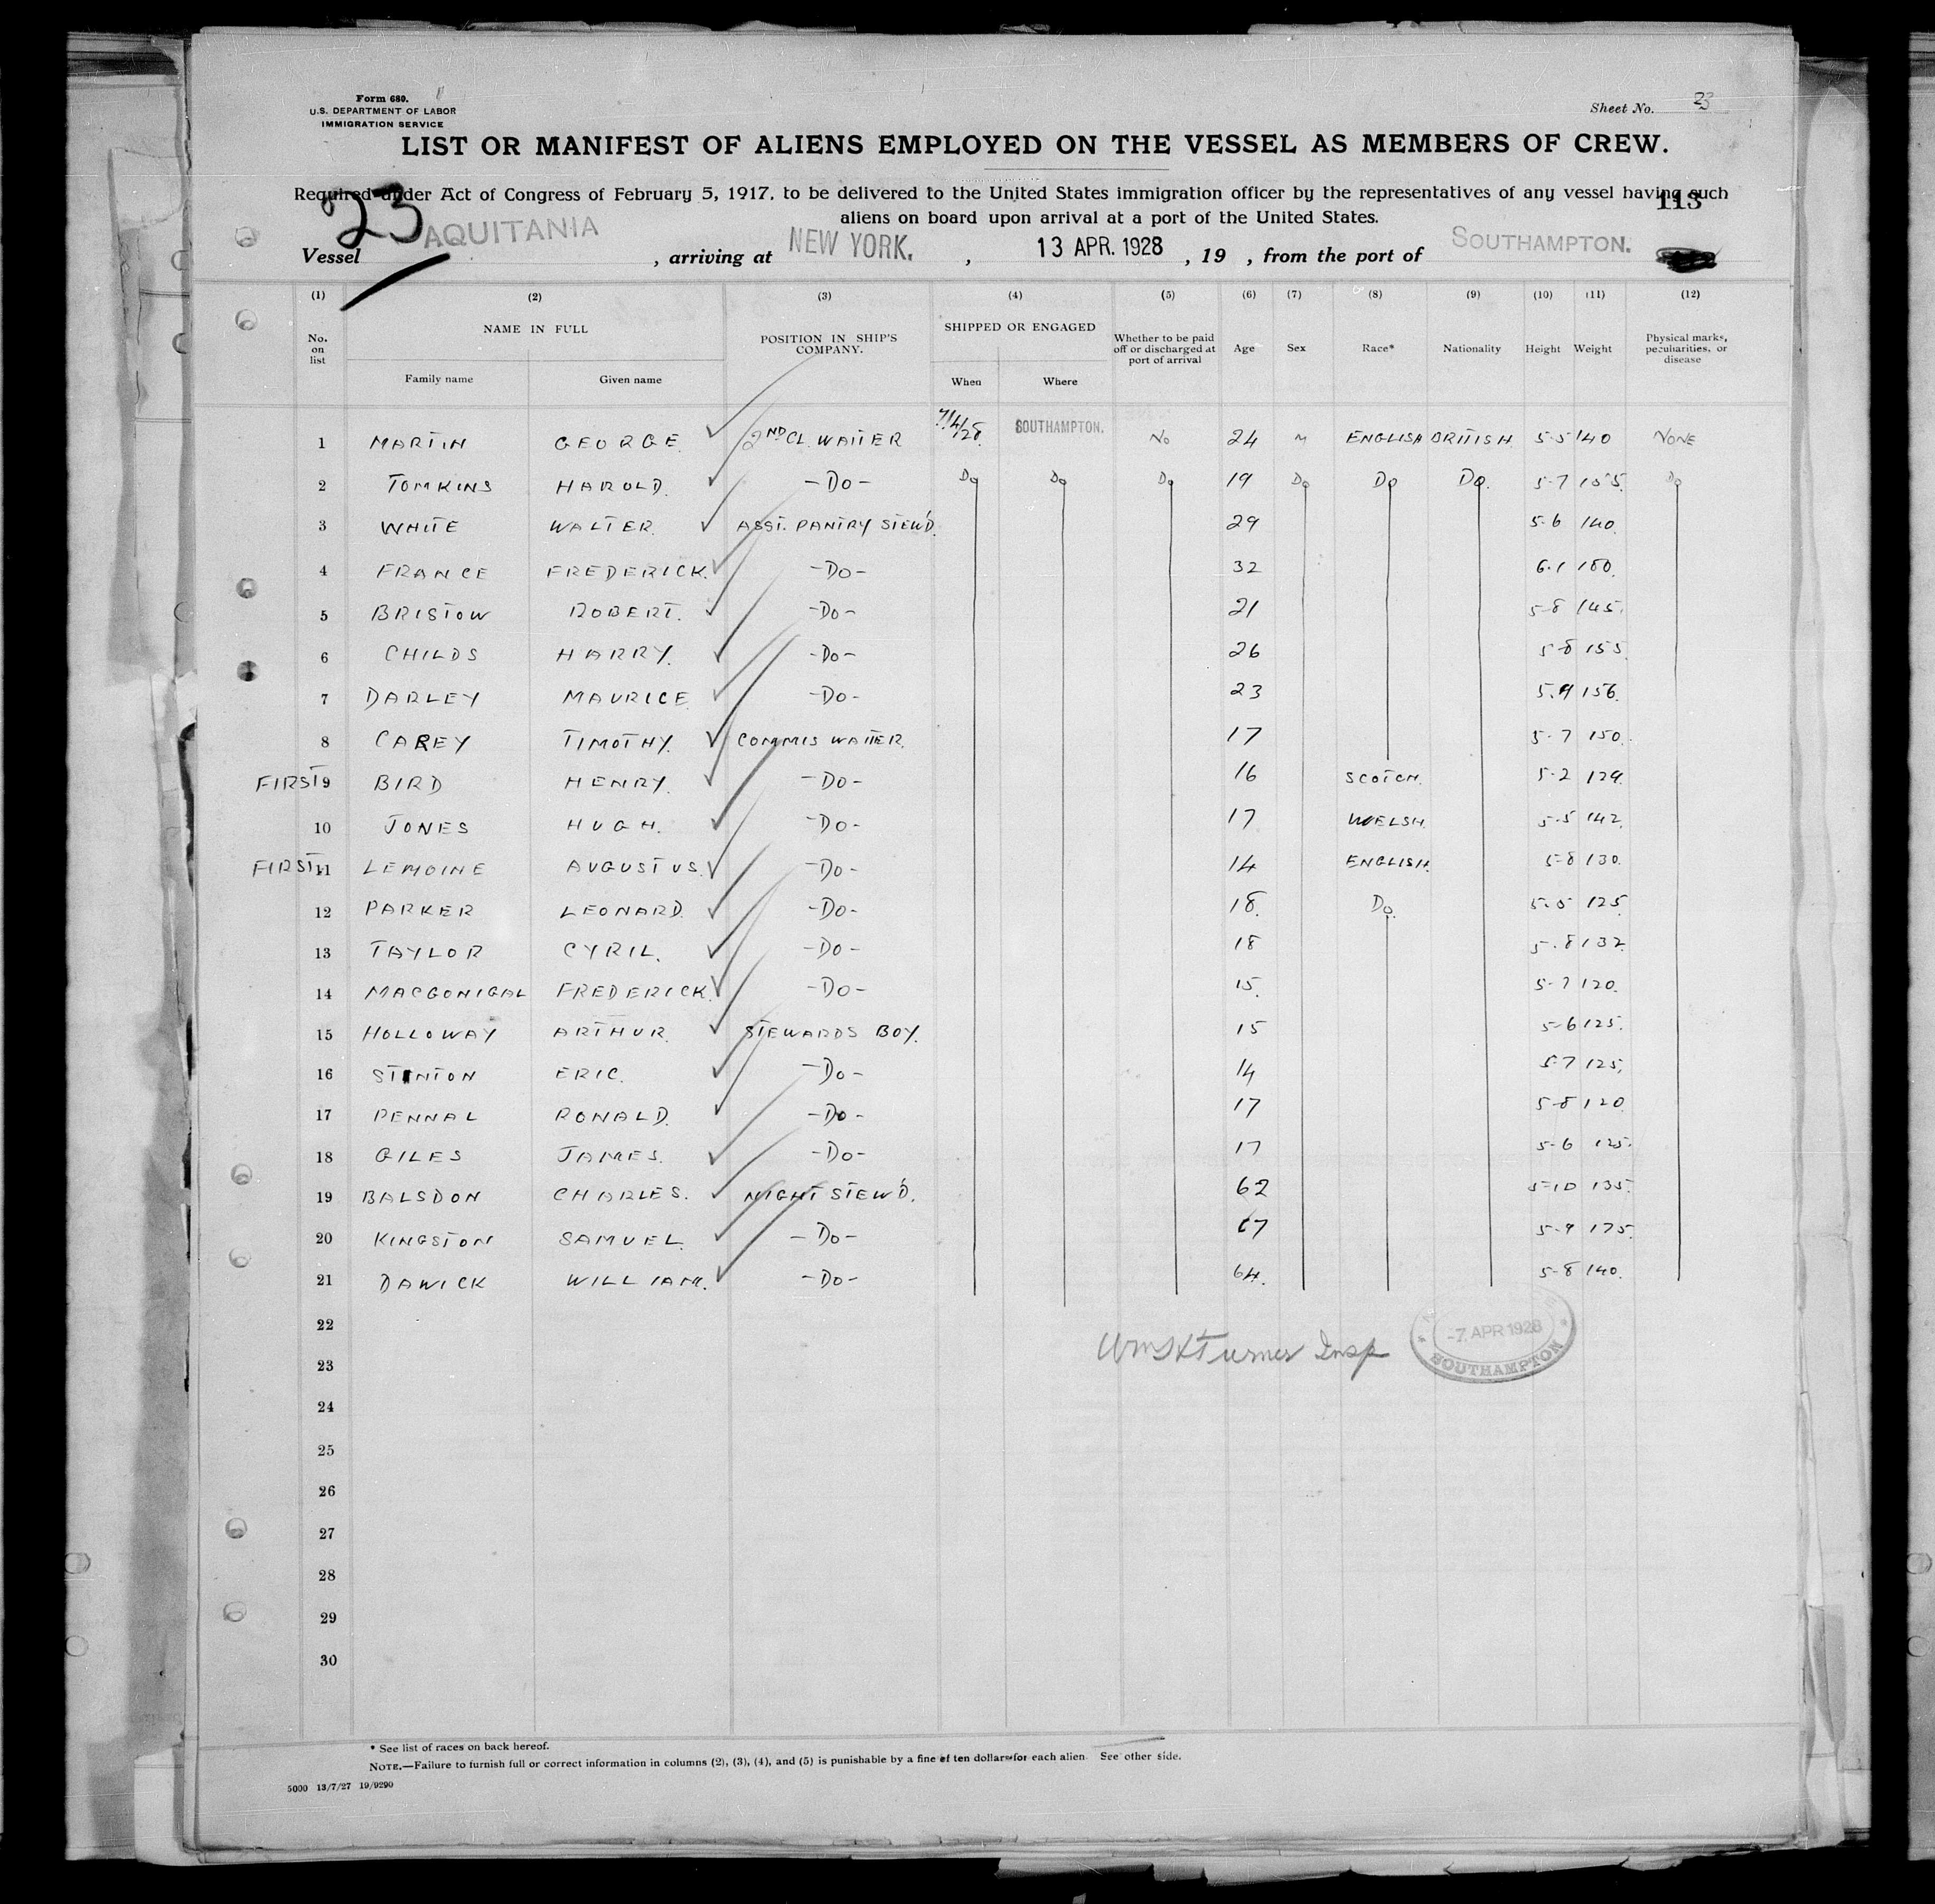 Form 680.
U.S. DEPARTMENT OF LABOR
IMMIGRATION SERVICE
Sheet No. 23
LIST OR MANIFEST OF ALIENS EMPLOYED ON THE VESSEL AS MEMBERS OF CREW.
Required under Act of Congress of February 5, 1917, to be delivered to the United States immigration officer by the representatives of any vessel having such
aliens on board upon arrival at a port of the United States.
113
23
Vessel AQUITANIA, arriving at NEW YORK., 13 APR. 1928, 19 , from the port of SOUTHAMPTON.
(1) (2) (3) (4) (5) (6) (7) (8) (9) (10) (11) (12)
No. on list NAME IN FULL POSITION IN SHIP'S COMPANY. SHIPPED OR ENGAGED Whether to be paid off or discharged at port of arrival Age Sex Race* Nationality Height Weight Physical marks, peculiarities, or disease
Family name Given name When Where
1 MARTIN GEORGE. 2ND CL. WAITER 7/4/28. SOUTHAMPTON. No 24 M ENGLISH BRITISH 5-5 140 NONE
2 TOMKINS HAROLD. -Do- Do Do Do 19 Do Do Do. 5-7 155. Do
3 WHITE WALTER. ASST. PANTRY STEW'D. 29 5-6 140.
4 FRANCE FREDERICK. -Do- 32 6.1 180.
5 BRISTOW ROBERT. -Do- 21 5-8 145.
6 CHILDS HARRY. -Do- 26 5-8 155.
7 DARLEY MAURICE. -Do- 23 5.9 156.
8 CAREY TIMOTHY. COMMIS WAITER. 17 5-7 150.
FIRST 9 BIRD HENRY. -Do- 16 SCOTCH. 5-2 129.
10 JONES HUGH. -Do- 17 WELSH. 5-5 142.
FIRST. 11 LEMOINE AUGUSTUS. -Do- 14 ENGLISH. 5-8 130.
12 PARKER LEONARD. -Do- 18. Do. 5.5 125.
13 TAYLOR CYRIL. -Do- 18 5-.8 132.
14 MACGONIGAL FREDERICK. -Do- 15. 5-7 120.
15 HOLLOWAY ARTHUR. STEWARDS BOY. 15 5-6 125.
16 STINTON ERIC. -Do- 14 5-7 125.
17 PENNAL RONALD. -Do- 17 5-8 120
18 GILES JAMES. -Do- 17 5-6 125.
19 BALSDON CHARLES. NIGHT STEW'D. 62 5-10 135.
20 KINGSTON SAMUEL. -Do- 67 5-9 175.
21 DAWICK WILLIAM. -Do- 64. 5-8 140.
22
-7 APR 1928
SOUTHAMPTON
Turner Insp
23
24
25
26
27
28
29
30
* See list of races on back hereof.
NOTE.—Failure to furnish full or correct information in columns (2), (3), (4), and (5) is punishable by a fine of ten dollars for each alien. See other side.
5000 13/7/27 19/9290